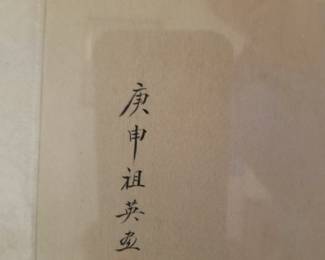 庚申祖英画